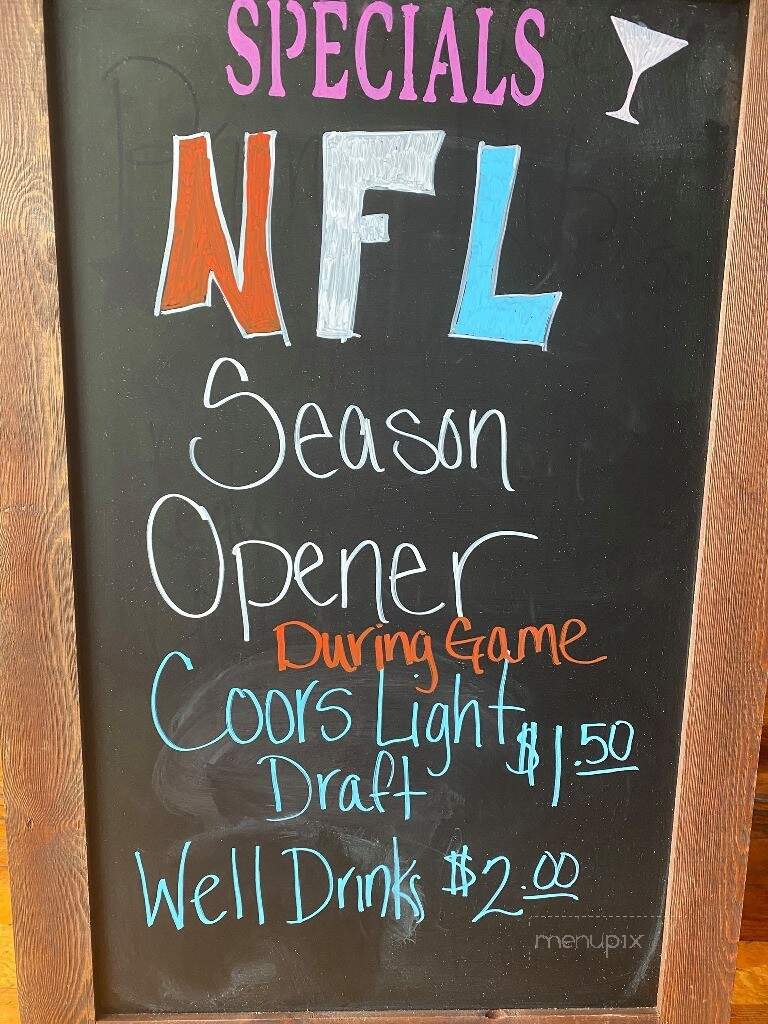 SPECIALS
NFL
Season
Opener
During Game
Coors Light
Draft $1.50
Well Drinks $2.00
menupix